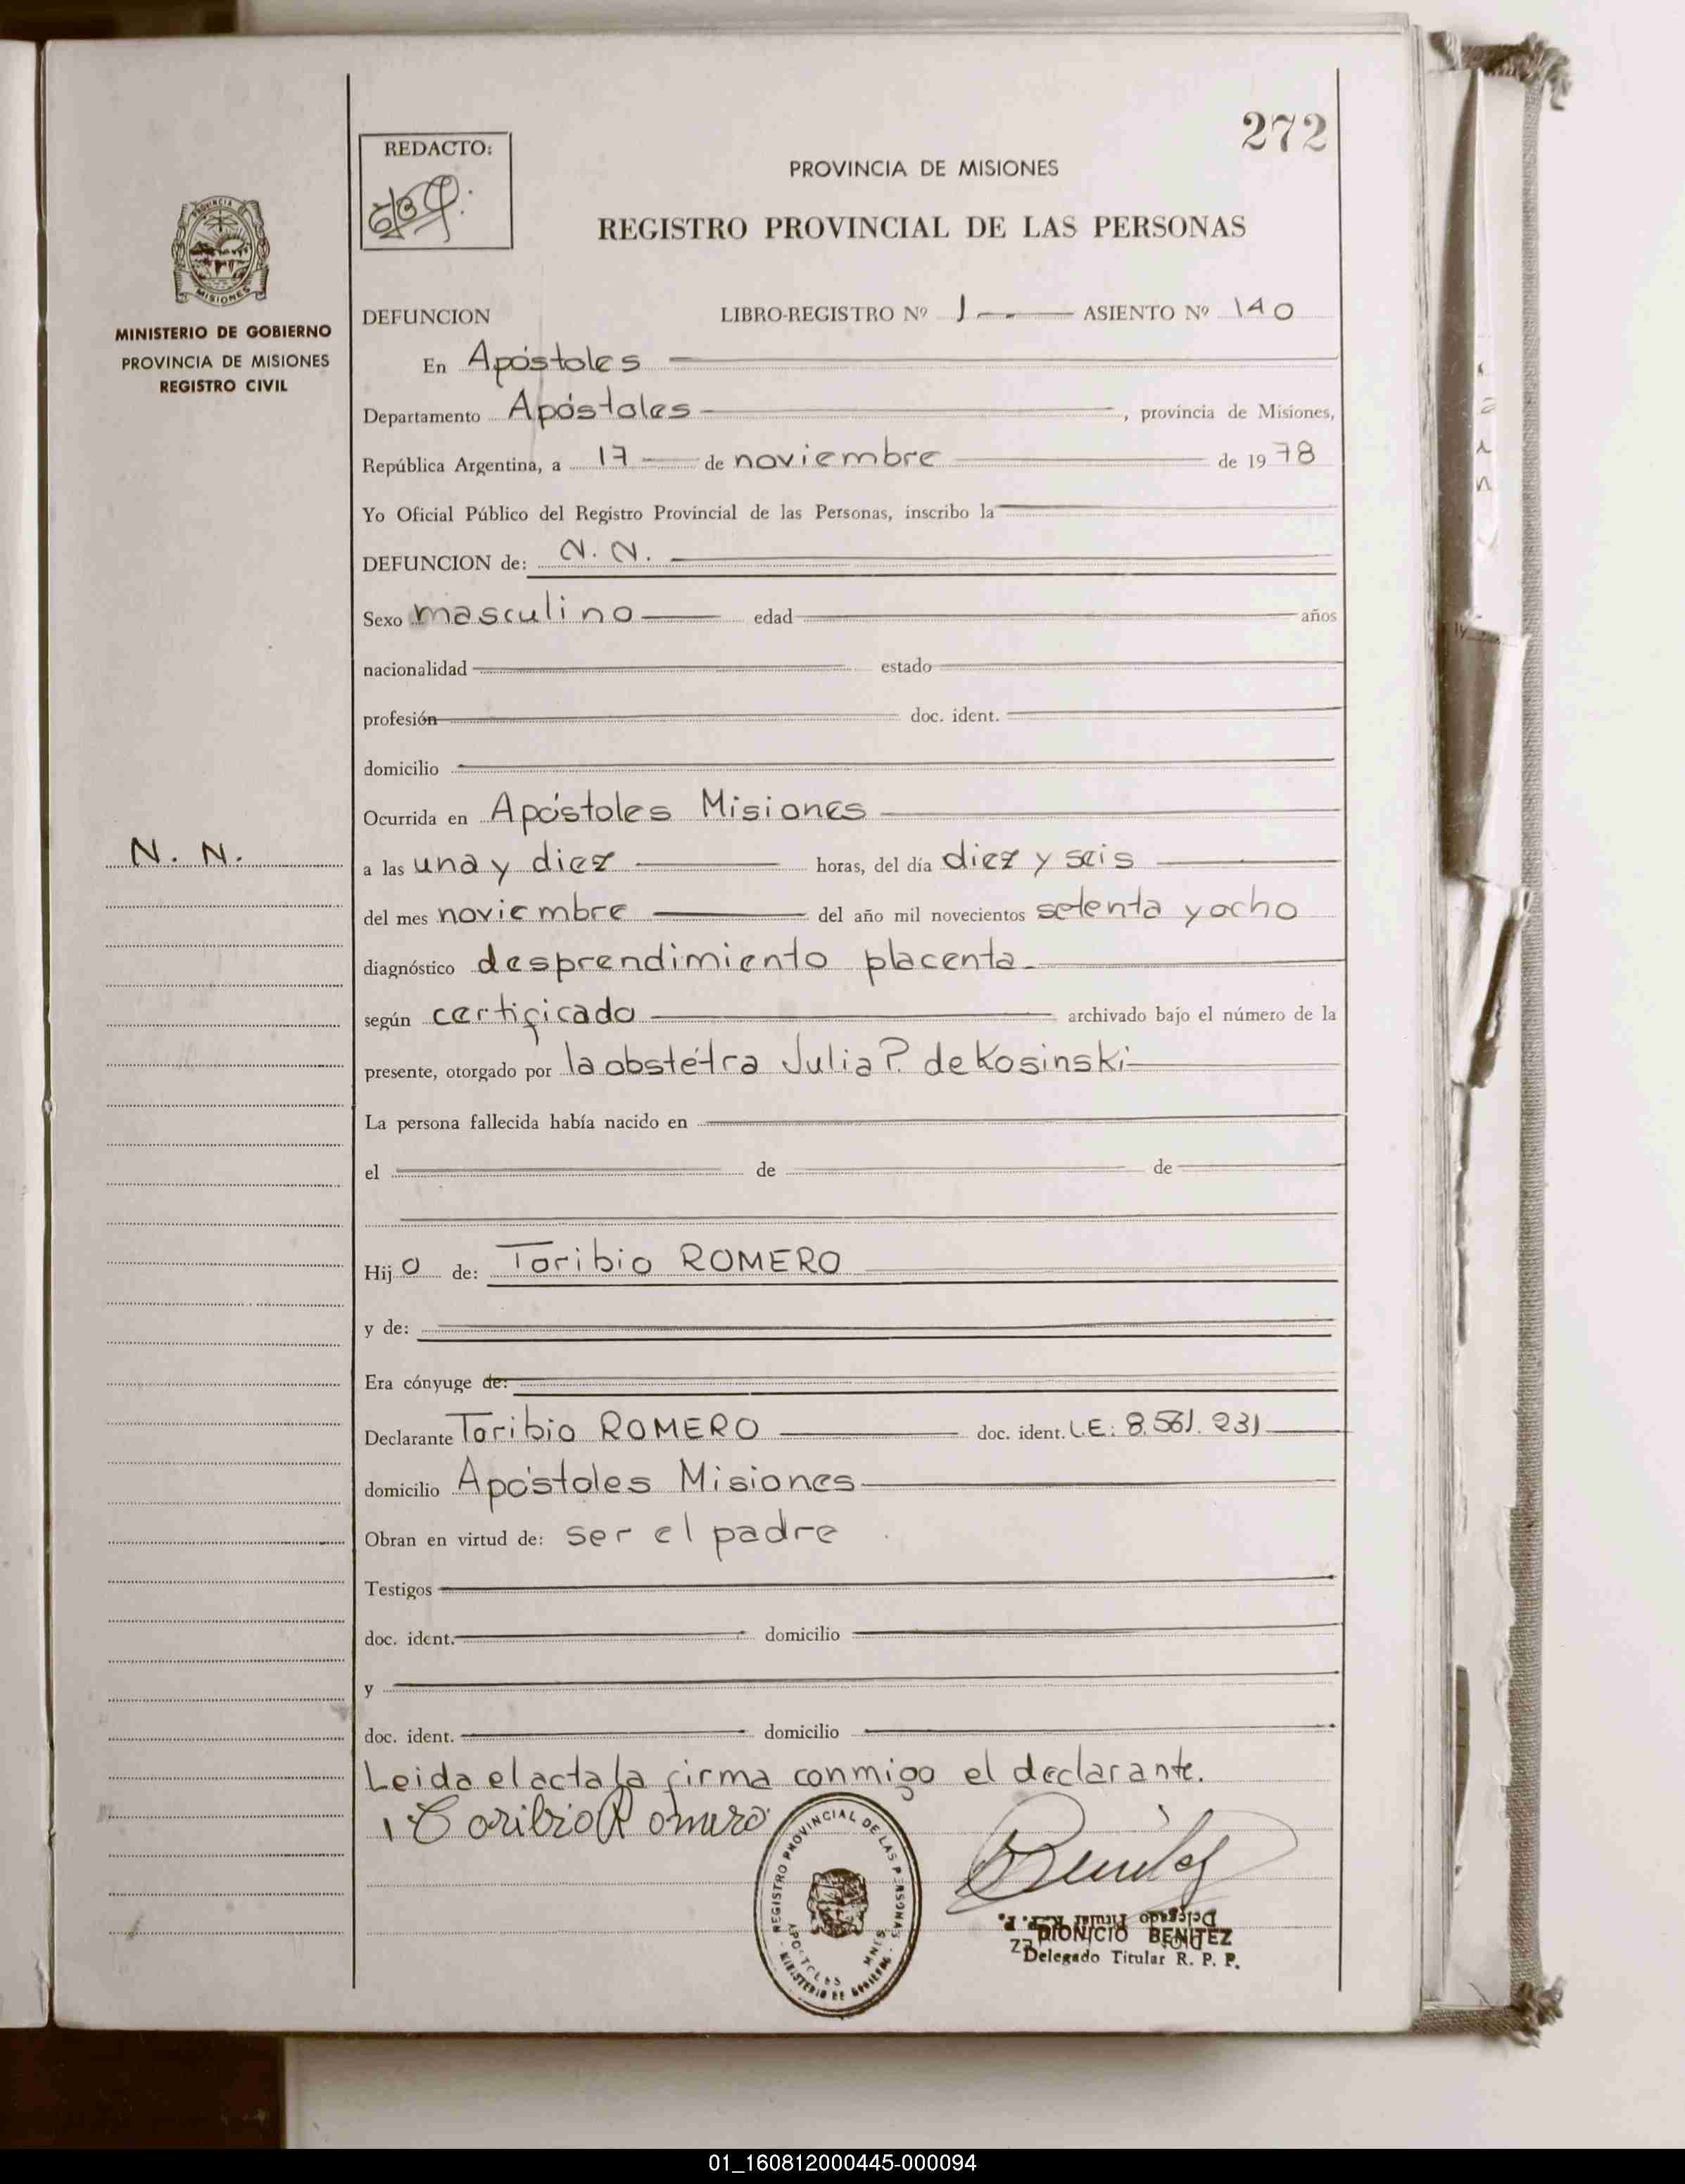 272
REDACTO:
PROVINCIA DE MISIONES
REGISTRO PROVINCIAL DE LAS PERSONAS
PROVINCIA DE
MISIONES
MINISTERIO DE GOBIERNO
PROVINCIA DE MISIONES
REGISTRO CIVIL
DEFUNCION LIBRO-REGISTRO Nº 1 ASIENTO Nº 140
En Apóstoles
Departamento Apóstoles, provincia de Misiones,
República Argentina, a 17 de noviembre de 1978
Yo Oficial Público del Registro Provincial de las Personas, inscribo la
DEFUNCION de: N. N.
Sexo masculino edad años
nacionalidad estado
profesión doc. ident.
domicilio
Ocurrida en Apóstoles Misiones
N. N.
a las una y diez horas, del día diez y seis
del mes noviembre del año mil novecientos setenta y ocho
diagnóstico desprendimiento placenta
según certificado archivado bajo el número de la
presente, otorgado por la obstétra Julia P. de Kosinski
La persona fallecida había nacido en
el de de
Hijo de: Toribio ROMERO
y de:
Era cónyuge de:
Declarante Toribio ROMERO doc. ident. L.E: 8.561.231
domicilio Apóstoles Misiones
Obran en virtud de: ser el padre
Testigos
doc. ident. domicilio
y
doc. ident. domicilio
Leida el acta la firma conmigo el declarante.
Toribio Romero Benitez
REGISTRO PROVINCIAL DE LAS PERSONAS
APOSTOLES MNES
MINISTERIO DE GOBIERNO
Delegado Titular R. P. P.
DIONICIO BENITEZ
Delegado Titular R. P. P.
01_160812000445-000094